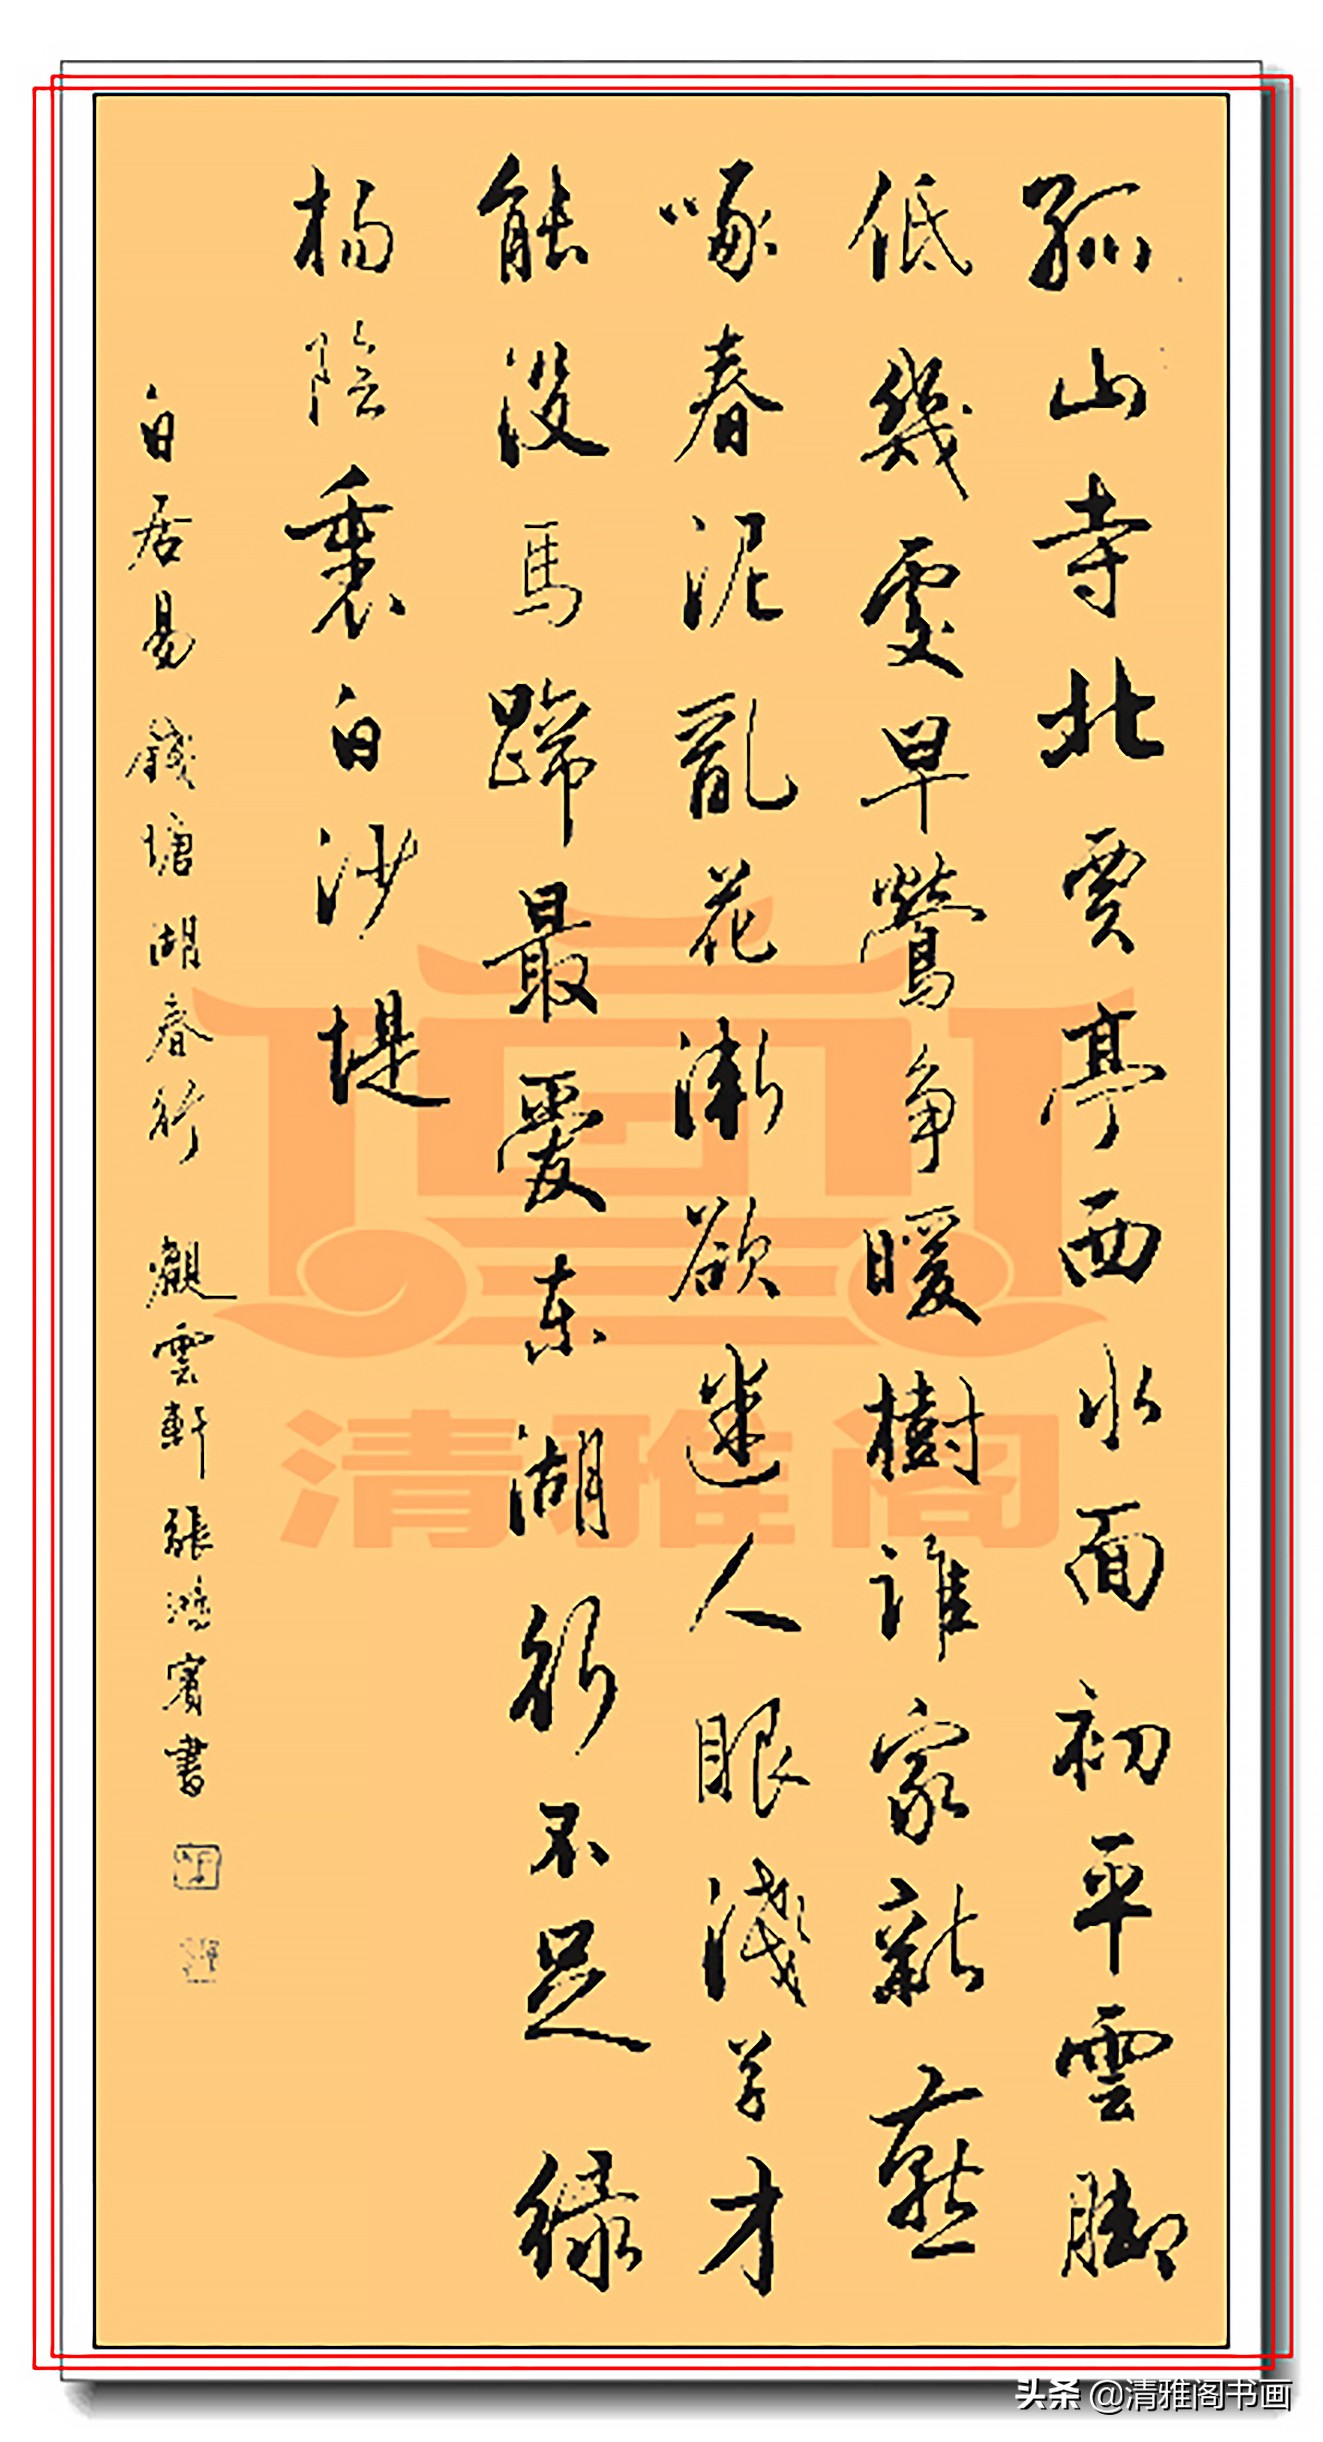 孤山寺北賈亭西水面初平雲脚
低幾處早鶯争暖樹誰家新燕
啄春泥亂花漸欲迷人眼淺草才
能没馬蹄最愛東湖行不足緑
楊陰裏白沙堤
白居易錢塘湖春行 觀雲軒張鴻賓書
清雅阁
头条 @清雅阁书画